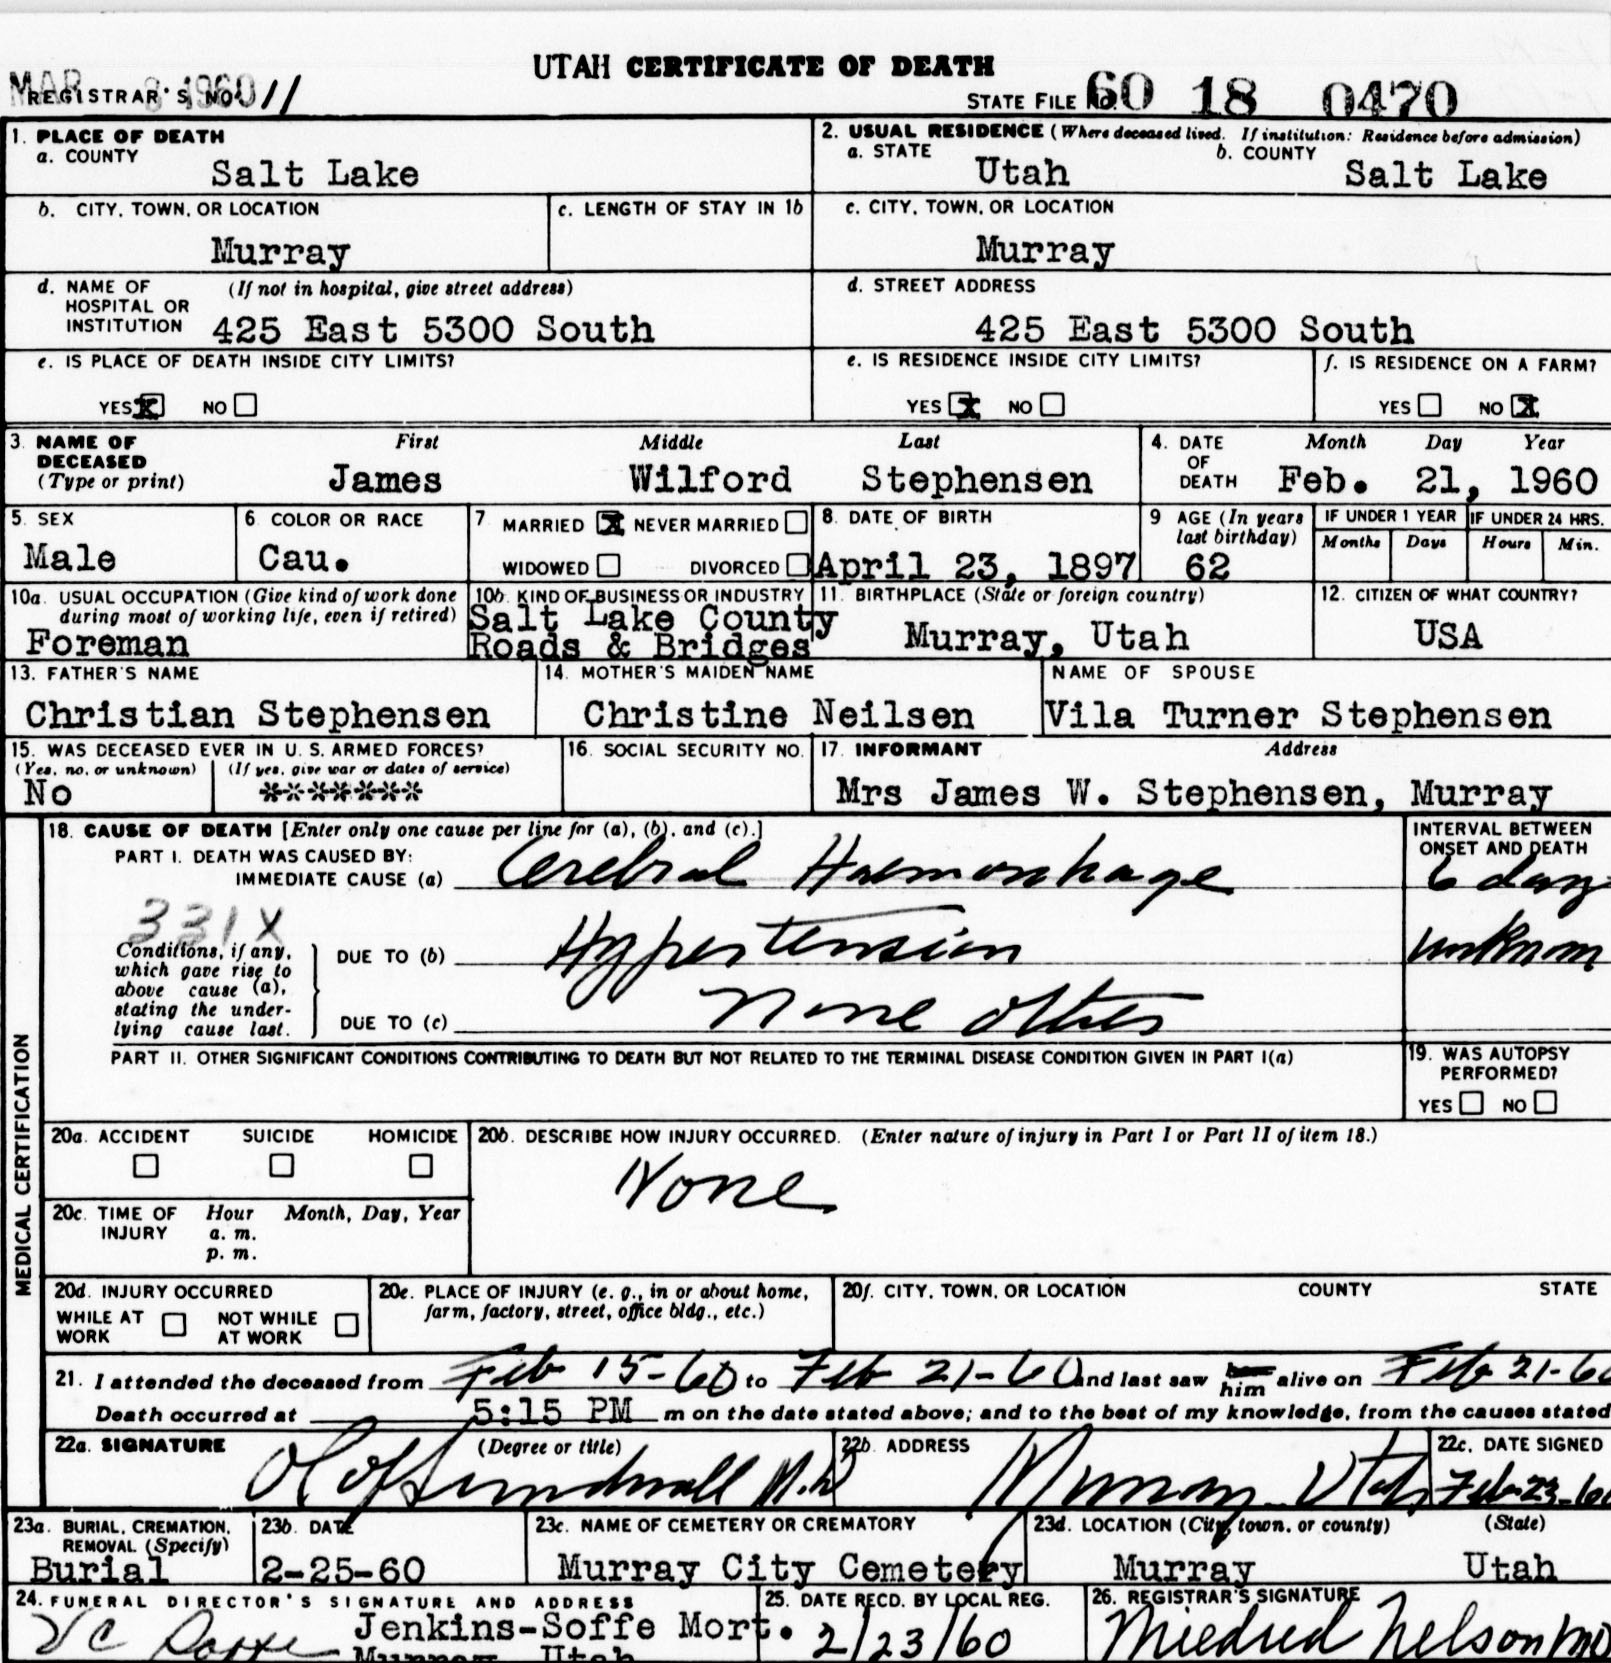 UTAH CERTIFICATE OF DEATH
MAR 8 1960
REGISTRAR'S NO. 11
STATE FILE NO. 60 18 0470
1. PLACE OF DEATH
a. COUNTY
Salt Lake
2. USUAL RESIDENCE (Where deceased lived. If institution: Residence before admission)
a. STATE Utah b. COUNTY Salt Lake
b. CITY, TOWN, OR LOCATION
Murray
c. LENGTH OF STAY IN 1b
c. CITY, TOWN, OR LOCATION
Murray
d. NAME OF HOSPITAL OR INSTITUTION (If not in hospital, give street address)
425 East 5300 South
d. STREET ADDRESS
425 East 5300 South
e. IS PLACE OF DEATH INSIDE CITY LIMITS?
YES X NO
e. IS RESIDENCE INSIDE CITY LIMITS?
YES X NO
f. IS RESIDENCE ON A FARM?
YES NO X
3. NAME OF DECEASED (Type or print)
First Middle Last
James Wilford Stephensen
4. DATE OF DEATH Month Day Year
Feb. 21, 1960
5. SEX
Male
6. COLOR OR RACE
Cau.
7. MARRIED X NEVER MARRIED
WIDOWED DIVORCED
8. DATE OF BIRTH
April 23, 1897
9 AGE (In years last birthday)
62
IF UNDER 1 YEAR IF UNDER 24 HRS.
Months Days Hours Min.
10a. USUAL OCCUPATION (Give kind of work done during most of working life, even if retired)
Foreman
10b. KIND OF BUSINESS OR INDUSTRY
Salt Lake County
Roads & Bridges
11. BIRTHPLACE (State or foreign country)
Murray, Utah
12. CITIZEN OF WHAT COUNTRY?
USA
13. FATHER'S NAME
Christian Stephensen
14. MOTHER'S MAIDEN NAME
Christine Neilsen
NAME OF SPOUSE
Vila Turner Stephensen
15. WAS DECEASED EVER IN U. S. ARMED FORCES?
(Yes, no, or unknown) (If yes, give war or dates of service)
No *******
16. SOCIAL SECURITY NO.
17. INFORMANT Address
Mrs James W. Stephensen, Murray
MEDICAL CERTIFICATION
18. CAUSE OF DEATH [Enter only one cause per line for (a), (b), and (c).]
PART I. DEATH WAS CAUSED BY:
IMMEDIATE CAUSE (a) Cerebral Haemorrhage
INTERVAL BETWEEN ONSET AND DEATH
6 days
331X
Conditions, if any, which gave rise to above cause (a), stating the underlying cause last.
DUE TO (b) Hypertension
unknown
DUE TO (c) None other
PART II. OTHER SIGNIFICANT CONDITIONS CONTRIBUTING TO DEATH BUT NOT RELATED TO THE TERMINAL DISEASE CONDITION GIVEN IN PART I(a)
19. WAS AUTOPSY PERFORMED?
YES NO
20a. ACCIDENT SUICIDE HOMICIDE
20b. DESCRIBE HOW INJURY OCCURRED. (Enter nature of injury in Part I or Part II of item 18.)
None
20c. TIME OF INJURY Hour Month, Day, Year
a. m.
p. m.
20d. INJURY OCCURRED
WHILE AT WORK NOT WHILE AT WORK
20e. PLACE OF INJURY (e. g., in or about home, farm, factory, street, office bldg., etc.)
20f. CITY, TOWN, OR LOCATION COUNTY STATE
21. I attended the deceased from Feb 15-60 to Feb 21-60 and last saw her him alive on Feb 21-60
Death occurred at 5:15 PM m on the date stated above; and to the best of my knowledge, from the causes stated
22a. SIGNATURE (Degree or title)
Olof Sundwall M.D
22b. ADDRESS
Murray Utah
22c. DATE SIGNED
Feb-23-60
23a. BURIAL, CREMATION, REMOVAL (Specify)
Burial
23b. DATE
2-25-60
23c. NAME OF CEMETERY OR CREMATORY
Murray City Cemetery
23d. LOCATION (City, town, or county) (State)
Murray Utah
24. FUNERAL DIRECTOR'S SIGNATURE AND ADDRESS
Jenkins-Soffe Mort.
Murray Utah
25. DATE RECD. BY LOCAL REG.
2/23/60
26. REGISTRAR'S SIGNATURE
Mildred Nelson MD